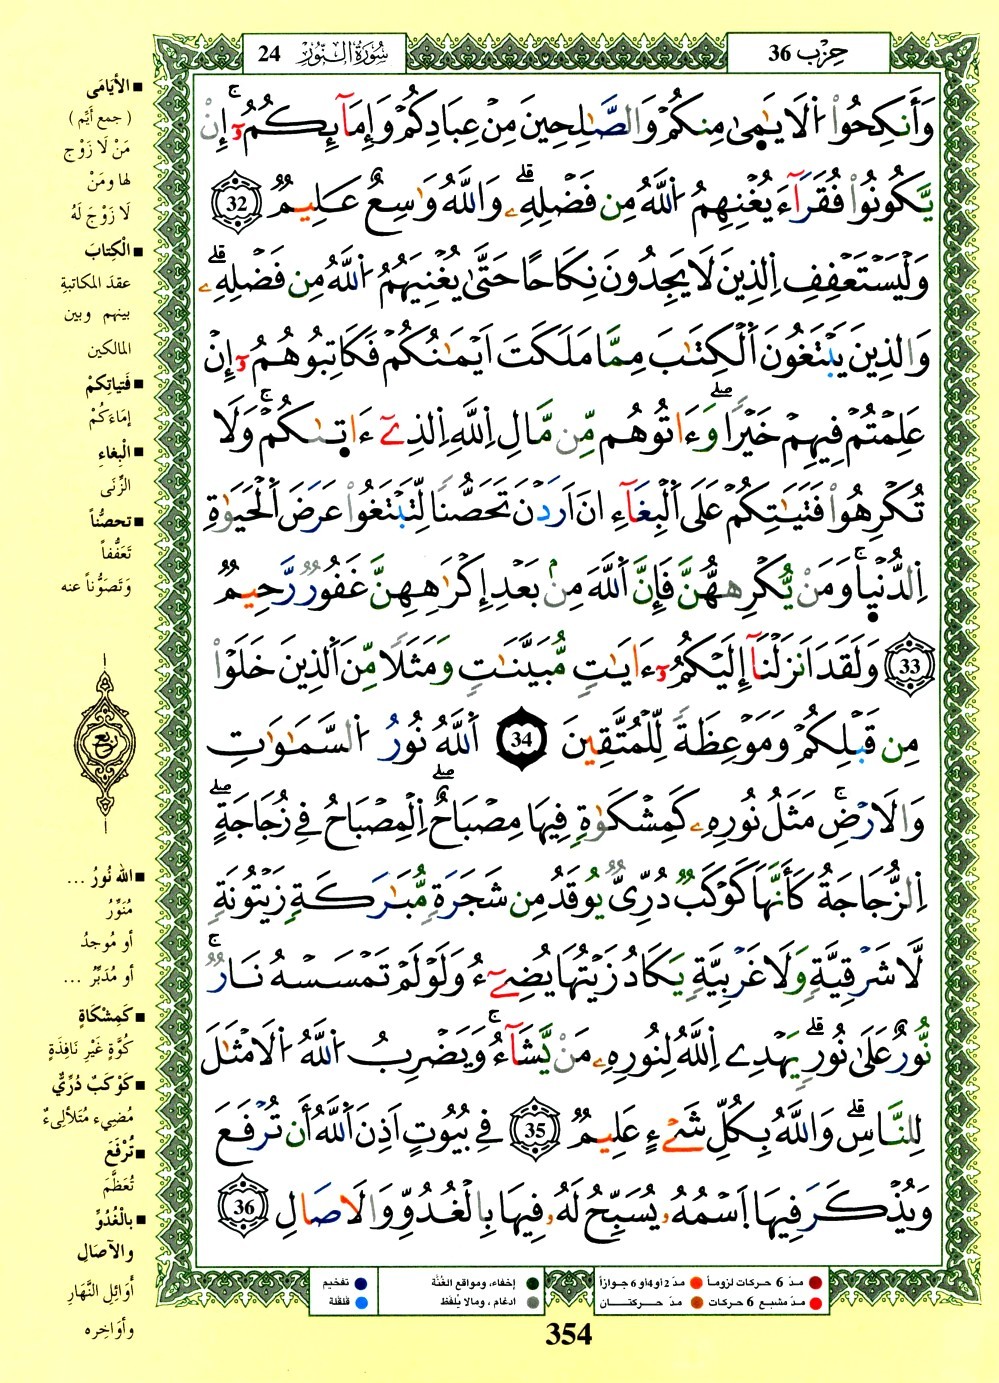 حِزْب 36
سُورَةُ النُّور 24
وَأَنكِحُواْ اُ۬لَايَٰم۪يٰ مِنكُمْ وَالصَّٰلِحِينَ مِنْ عِبَادِكُمْ وَإِمَآئِكُمُۥٓۖ إِنْ
يَّكُونُواْ فُقَرَآءَ يُغْنِهِمُ اُ۬للَّهُ مِن فَضْلِهِۦۖ وَاللَّهُ وَٰسِعٌ عَلِيمٞ 32
وَلْيَسْتَعْفِفِ اِ۬لذِينَ لَا يَجِدُونَ نِكَاحاً حَتَّىٰ يُغْنِيَهُمُ اُ۬للَّهُ مِن فَضْلِهِۦۖ
وَالذِينَ يَبْتَغُونَ اَ۬لْكِتَٰبَ مِمَّا مَلَكَتَ اَيْمَٰنُكُمْ فَكَاتِبُوهُمُۥٓ إِنْ
عَلِمْتُمْ فِيهِمْ خَيْراٗۖ وَءَاتُوهُم مِّن مَّالِ اِ۬للَّهِ اِ۬لذِےٓ ءَات۪ىٰكُمْۖ وَلَا
تُكْرِهُواْ فَتَيَٰتِكُمْ عَلَى اَ۬لْبِغَآءِ انَ اَرَدْنَ تَحَصُّناٗ لِّتَبْتَغُواْ عَرَضَ اَ۬لْحَيَوٰةِ
اِ۬لدُّنْي۪اۖ وَمَنْ يُّكْرِههُّنَّ فَإِنَّ اَ۬للَّهَ مِنۢ بَعْدِ إِكْرَٰهِهِنَّ غَفُورٞ رَّحِيمٞ
33 وَلَقَدَ اَنزَلْنَآ إِلَيْكُمُۥٓ ءَايَٰتٖ مُّبَيَّنَٰتٖ وَمَثَلاٗ مِّنَ اَ۬لذِينَ خَلَوْاْ
مِن قَبْلِكُمْ وَمَوْعِظَةٗ لِّلْمُتَّقِينَ 34 اَ۬للَّهُ نُورُ اُ۬لسَّمَٰوَٰتِ
وَالَارْضِۖ مَثَلُ نُورِهِۦ كَمِشْكَوٰةٖ فِيهَا مِصْبَاحٌۖ اِ۬لْمِصْبَاحُ فِے زُجَاجَةٍۖ
اِ۬لزُّجَاجَةُ كَأَنَّهَا كَوْكَبٞ دُرِّيّٞ يُوقَدُ مِن شَجَرَةٖ مُّبَٰرَكَةٖ زَيْتُونَةٖ
لَّا شَرْقِيَّةٖ وَلَا غَرْبِيَّةٖ يَكَادُ زَيْتُهَا يُضِےٓءُ وَلَوْ لَمْ تَمْسَسْهُ نَارٞۖ
نُّورٌ عَلَىٰ نُورٖۖ يَهْدِے اِ۬للَّهُ لِنُورِهِۦ مَنْ يَّشَآءُۖ وَيَضْرِبُ اُ۬للَّهُ اُ۬لَامْثَٰلَ
لِلنَّاسِۖ وَاللَّهُ بِكُلِّ شَےْءٍ عَلِيمٞ 35 فِے بُيُوتٍ اَذِنَ اَ۬للَّهُ أَن تُرْفَعَ
وَيُذْكَرَ فِيهَا اَ۪سْمُهُۥ يُسَبِّحُ لَهُۥ فِيهَا بِالْغُدُوِّ وَالَاصَالِ 36
الأَيَامَى
( جمع أَيِّم )
مَنْ لَا زَوْج
لها ومَنْ
لَا زَوْجَ لَهُ
الْكِتابَ
عقدَ المكاتبةِ
بينهم وبين
المالكين
فَتياتِكمْ
إمَاءَكُمْ
الْبِغاءِ
الزِّنَى
تحصُّناً
تَعَفُّفاً
وَتَصَوُّناً عنه
ربع
الله نُورُ ...
مُنَوِّرُ
أو مُوجدُ
أو مُدَبِّرُ ...
كَمِشْكَاةٍ
كُوَّةٍ غَيْرِ نَافِذَةٍ
كَوْكَبٌ دُرِّيٌّ
مُضِيء مُتَلألِىءٌ
تُرْفَعَ
تُعَظَّمَ
بالْغُدُوِّ
والآصَالِ
أَوَائِلِ النَّهَارِ
وأَوَاخِره
مدّ 6 حركات لزوماً
مدّ 2 أو 4 أو 6 جوازاً
إخفاء، ومواقع الغُنَّة
تفخيم
مدّ مشبع 6 حركات
مدّ حركتـــان
ادغام ، ومالا يُلفَظ
قلقلة
354